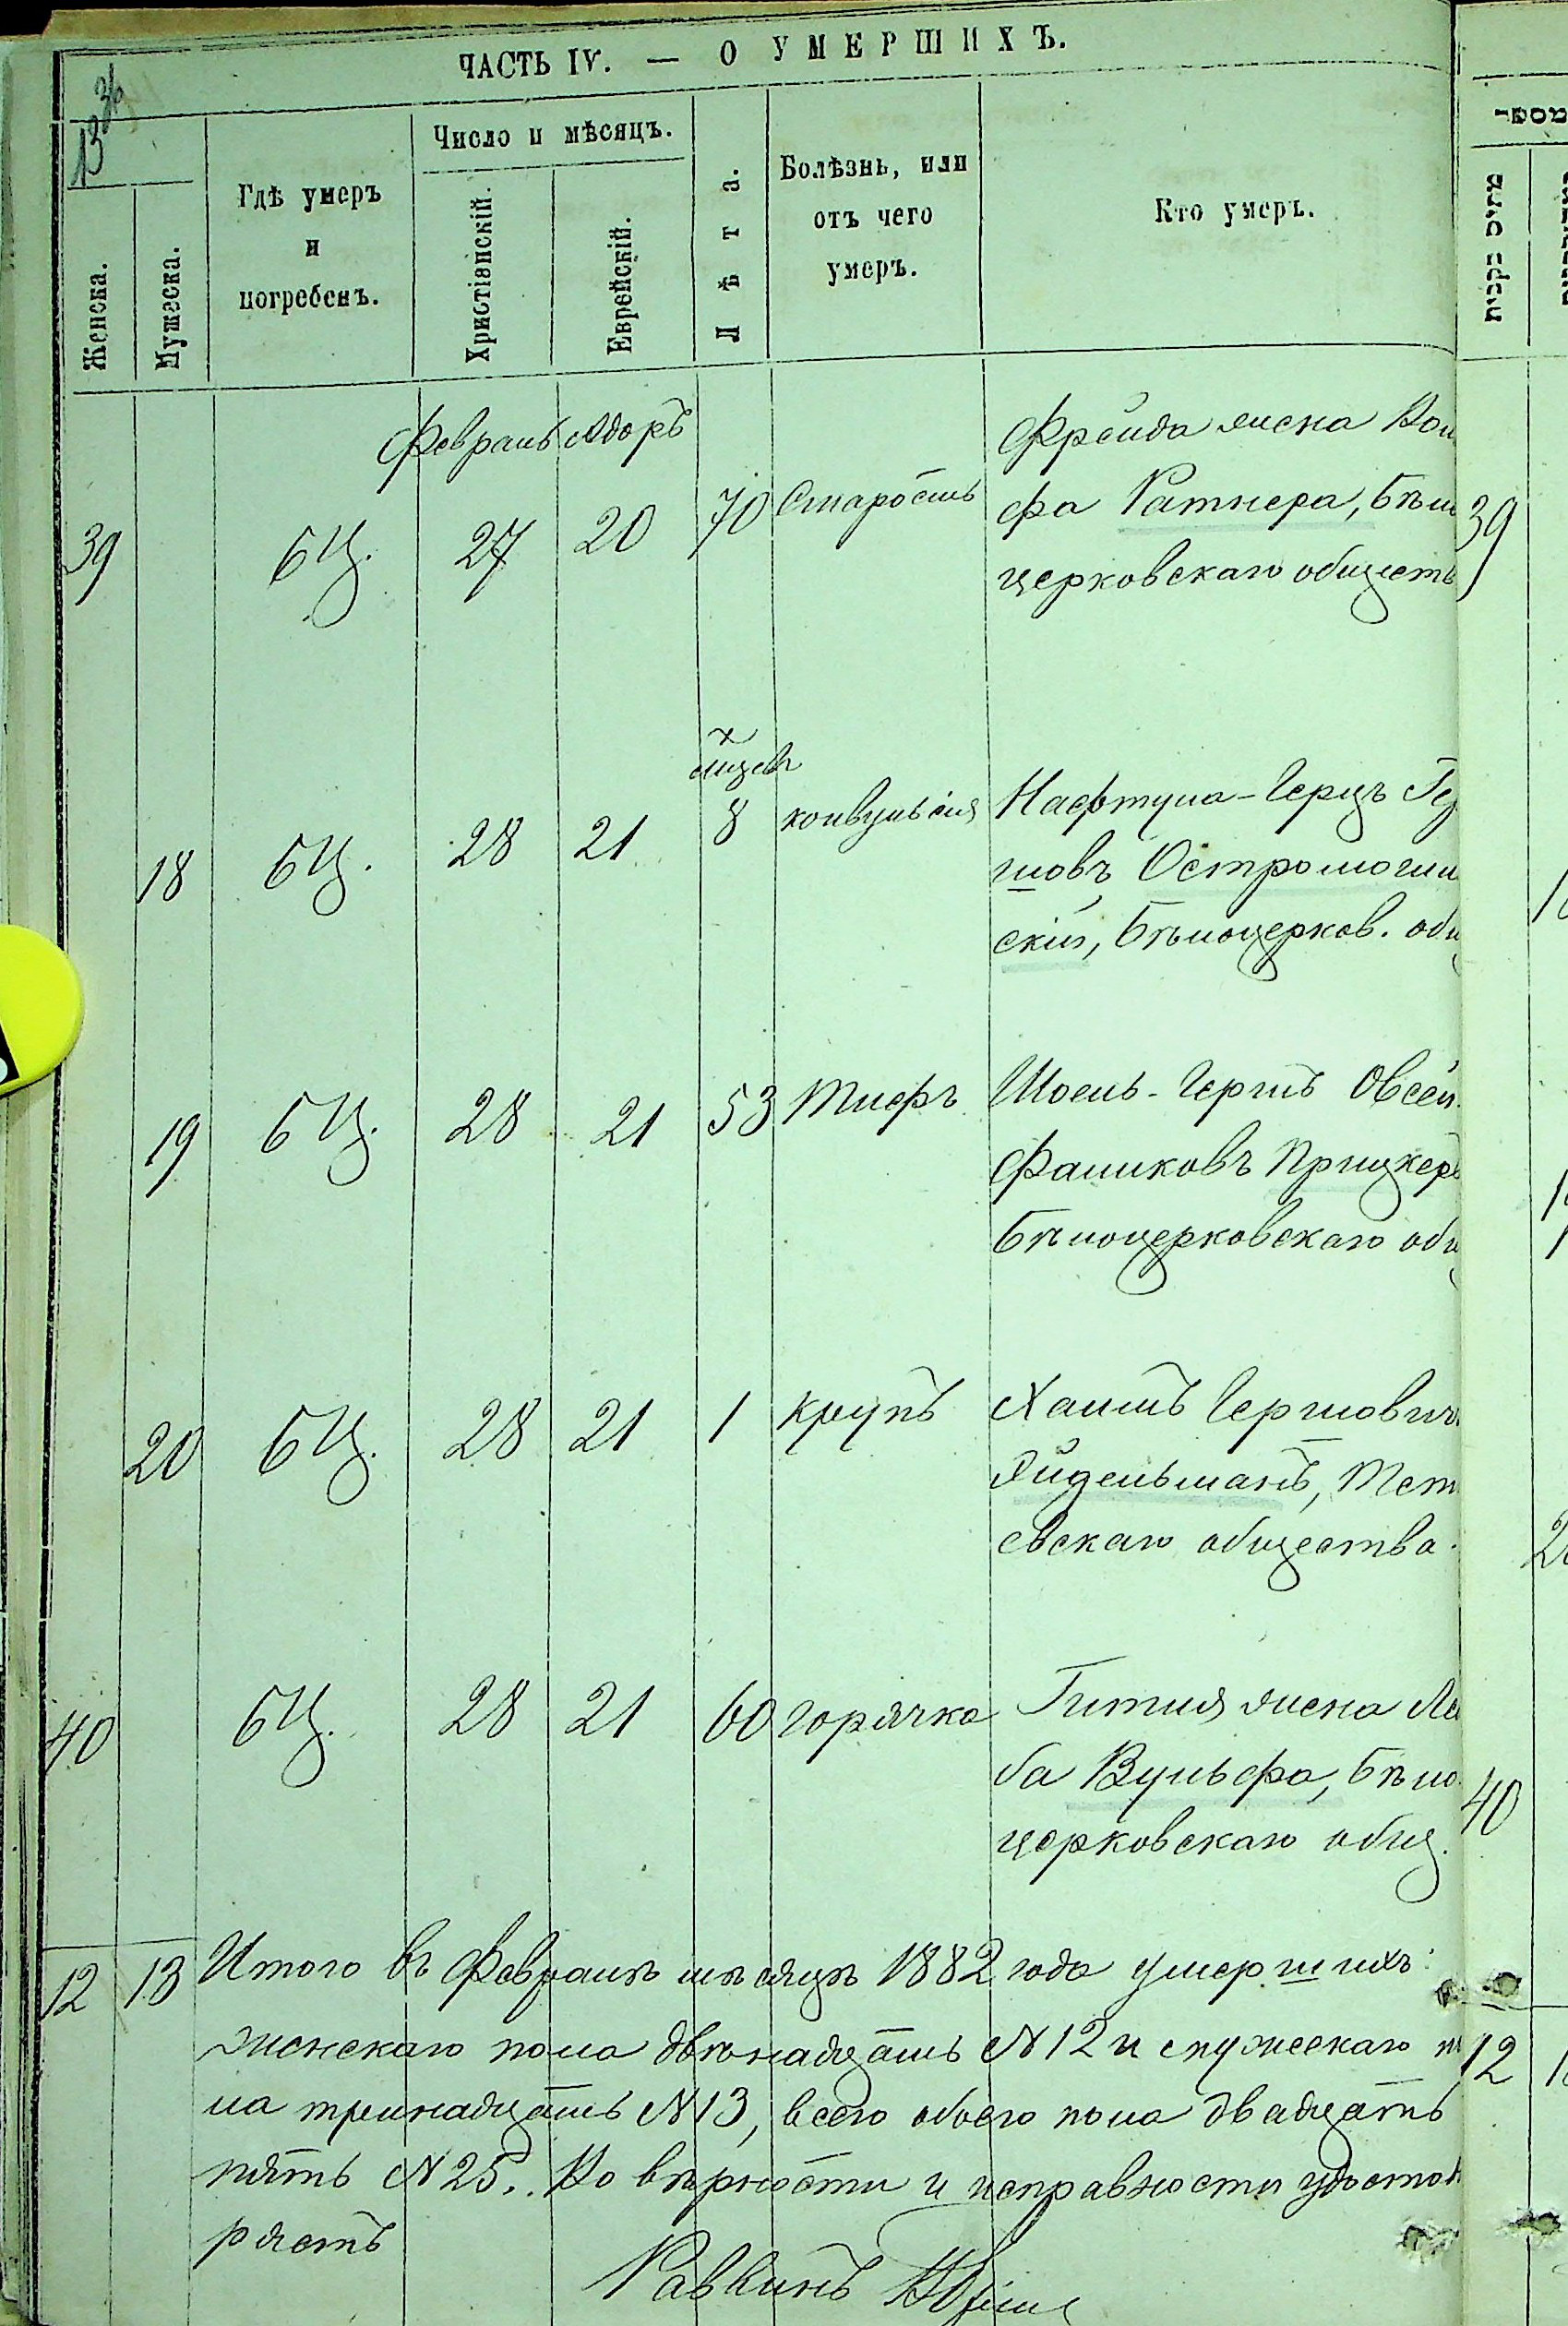 ЧАСТЬ IV. — О УМЕРШИХЪ.
13
Женска.
Мужеска.
Гдѣ умеръ
и
погребенъ.
Число и мѣсяцъ.
Христіанскій.
Еврейскій.
Лѣта.
Болѣзнь, или
отъ чего
умеръ.
Кто умеръ.
מתים נקבות
Февраль Адаръ
39 БЦ. 27 20 70 Старость
Фрейда жена
фа Ратнера, Бѣло
церковскаго обществ
39
мѣсяцевъ
18 БЦ. 28 21 8 конвульсія
Нафтула-Герцъ Гер
шовъ Остромогиль
скій, Бѣлоцерков. общ
19 БЦ. 28 21 53 Тифъ
Шоель-Гершъ Овсей
Фаликовъ Прицкеръ
Бѣлоцерковскаго общ
20 БЦ. 28 21 1 крупъ
Хаимъ Гершовичъ
Яйдельманъ, Тет
евскаго общества.
40 БЦ. 28 21 60 горячка
Гитля жена Лей
ба Вульфа, Бѣло
церковскаго общ.
40
12 13 Итого въ Февралѣ мѣсяцѣ 1882 года умершихъ:
женскаго пола двѣнадцать №12 и мужескаго по
ла тринадцать №13, всего обоего пола двадцать
пять №25. Въ вѣрности и исправности удостовѣ
ряетъ
Раввинъ
12